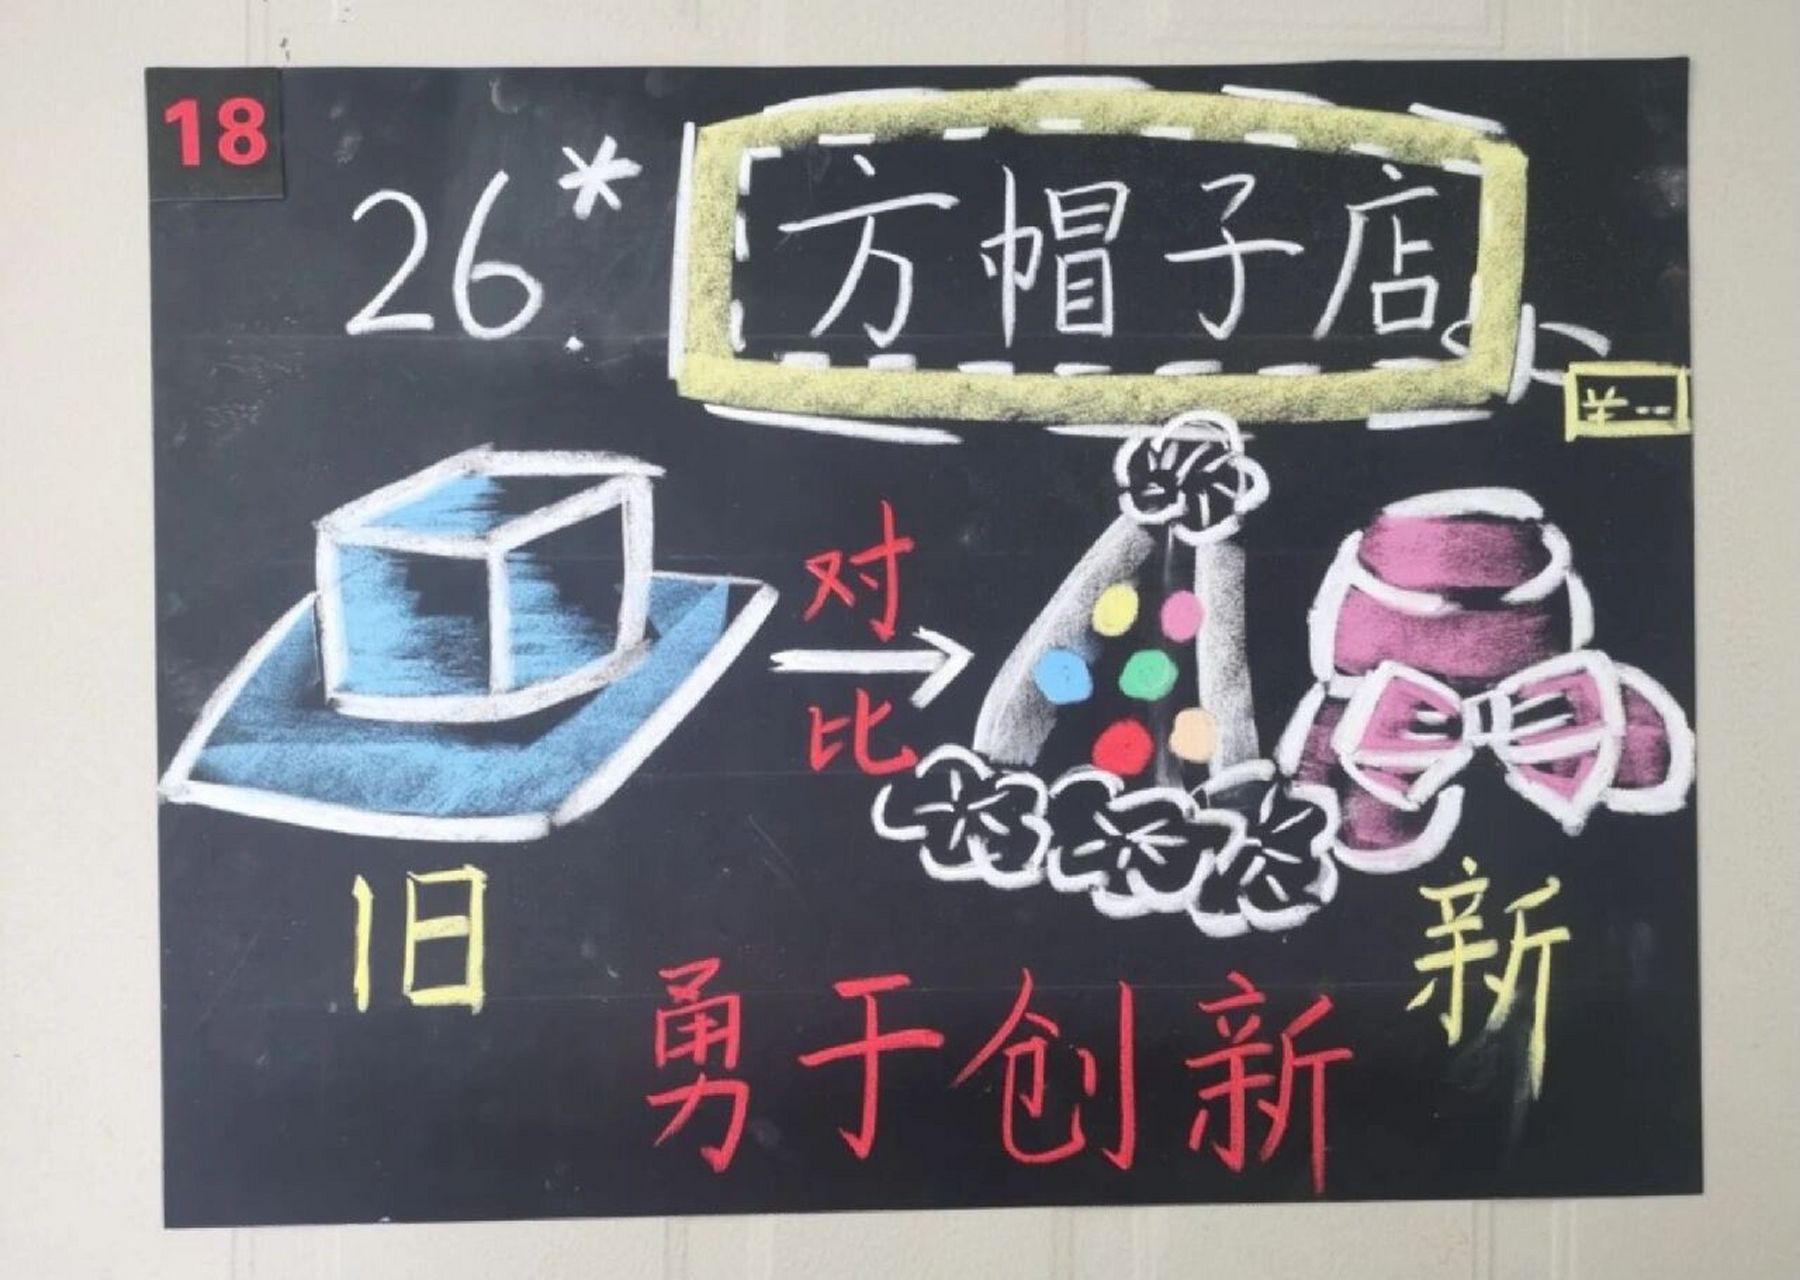 18
26* 方帽子店
¥--
对
比
旧
新
勇于创新